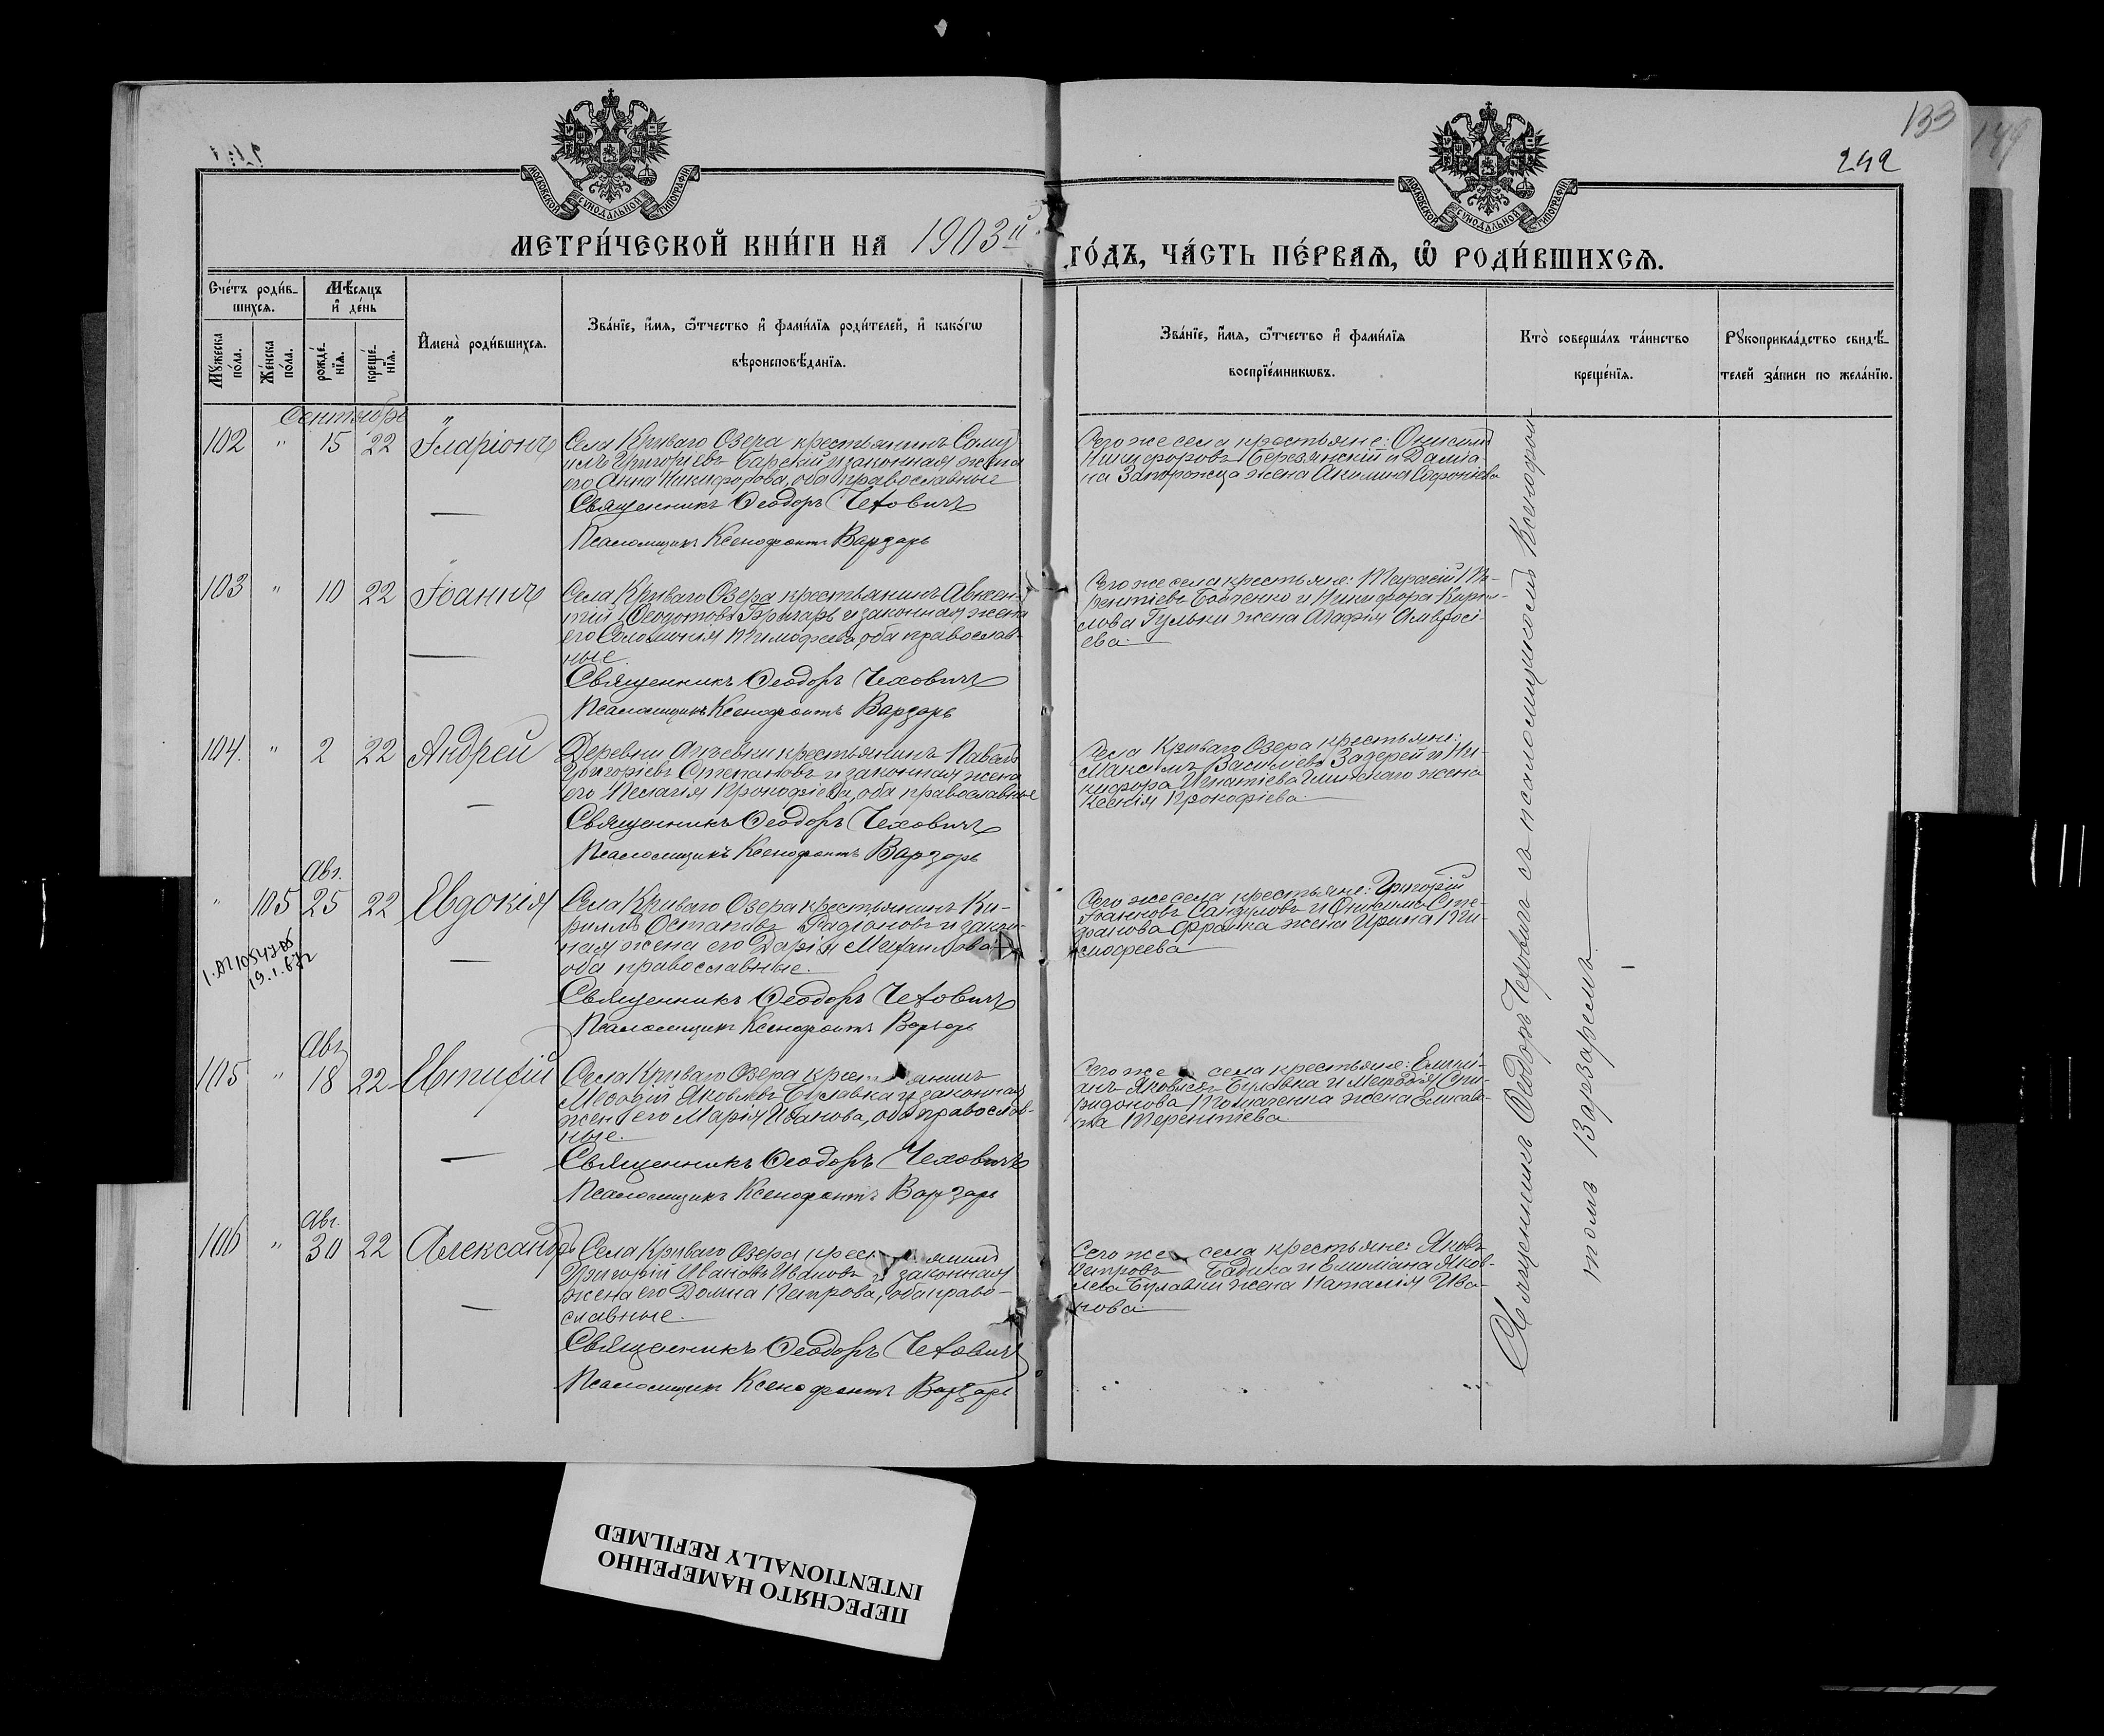 133
149
242
МОСКОВСКОЙ СѴНОДАЛЬНОЙ ТИПОГРАФІИ
МОСКОВСКОЙ СѴНОДАЛЬНОЙ ТИПОГРАФІИ
МЕТРИ́ЧЕСКОЙ КНИ́ГИ НА 1903й ГО́ДЪ, ЧА́СТЬ ПЕ́РВАЯ, Ѡ РОДИ́ВШИХСЯ.
Сче́тъ роди́в-
шихся.
Мѣ́сяцъ
и҆ де́нь
Мꙋ́жеска по́ла.
Же́нска по́ла.
рожде́-
нїя.
креще́-
нїя.
И҆мена̀ роди́вшихся.
Зва́нїе, и҆́мя, ѻ҆́тчество и҆ фами́лїя роди́телей, и҆ како́гѡ
вѣроисповѣ́данїя.
Зва́нїе, и҆́мя, ѻ҆́тчество и҆ фами́лїя
воспрїе́мникѡвъ.
Кто̀ соверша́лъ та́инство
креще́нїя.
Рꙋкоприкла́дство свидѣ́-
телей за́писи по жела́нїю.
Сентябрь
102 " 15 22 Іларіонъ
Села Криваго Озера крестьянинъ Саму-
илъ Григоріевъ Барскій и законная жена
его Анна Никифорова, оба православные
Священникъ Ѳеодоръ Чеховичъ
Псаломщикъ Ксенофонтъ Варзарь
Сего же села крестьяне: Онисимъ
Никифоровъ Березянскій и Даміа-
на Запорожца жена Акилина Софоніева
103 " 10 22 Іоаннъ
Села Криваго Озера крестьянинъ Авксен-
тій Ѳеодотовъ Бригарь и законная жена
его Соломонія Тимофеева, оба православ-
ные.
Священникъ Ѳеодоръ Чеховичъ
Псаломщикъ Ксенофонтъ Варзарь
Сего же села крестьяне: Тарасій Те-
рентіевъ Бойченко и Никифора Кирил-
лова Гульки жена Агафія Амвросі-
ева.
104. " 2 22 Андрей
Деревни крестьянинъ Павелъ
Григоріевъ Степановъ и законная жена
его Пелагія Прокофіева, оба православные
Священникъ Ѳеодоръ Чеховичъ
Псаломщикъ Ксенофонтъ Варзарь
Села Криваго Озера крестьяне:
Максимъ Васильевъ Задерей и Ни-
кифора Игнатіева жена
Ксенія Прокофіева.
Авг.
" 105 25 22 Евдокія
Села Криваго Озера крестьянинъ Ки-
риллъ Остаповъ Радіоновъ и закон-
ная жена его Дарія Михаилова
оба православные.
Священникъ Ѳеодоръ Чеховичъ
Псаломщикъ Ксенофонтъ Варзарь
Сего же села крестьяне: Григорій
Іоанновъ Сандуловъ и Онисима Сте-
фанова Франка жена Ирина Ти-
мофеева
19.1.
Авг.
105 " 18 22 Евтихій
Села Криваго Озера крестьянинъ
Меѳодій Яковлевъ Булавка и законная
жена его Марія Иванова, оба православ-
ные.
Священникъ Ѳеодоръ Чеховичъ
Псаломщикъ Ксенофонтъ Варзарь
Сего же села крестьяне: Емилі-
анъ Яковлевъ Булавка и Меѳодія Спи-
ридонова жена Елисаве-
та Терентіева.
Авг.
106 " 30 22 Александръ
Села Криваго Озера крестьянинъ
Григорій Ивановъ Ивановъ и законная
жена его Домна Петрова, оба право-
славные.
Священникъ Ѳеодоръ Чеховичъ
Псаломщикъ Ксенофонтъ Варзарь
Сего же села крестьяне: Яковъ
Петровъ и Емиліана Яков-
лева Булавки жена Наталія Ива-
нова.
Священникъ Ѳеодоръ Чеховичъ съ псаломщикомъ Ксенофон-
томъ Варзаремъ.
ПЕРЕСНЯТО НАМЕРЕННО
INTENTIONALLY REFILMED